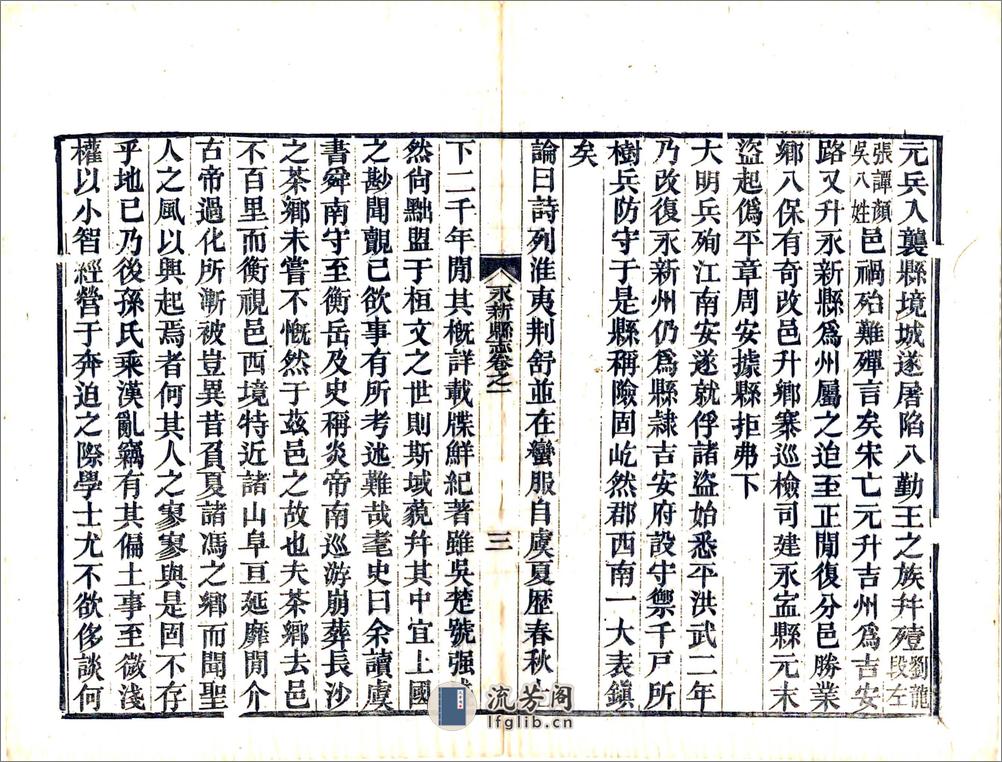 元兵入襲縣境城遂屠陷八勤王之族并殪劉龍段左
張譚顏吳八姓邑禍殆難殫言矣宋亡元升吉州爲吉安
路又升永新縣爲州屬之迨至正閒復分邑勝業
鄉八保有奇改邑升鄉寨巡檢司建永寍縣元末
盜起僞平章周安據縣拒弗下
大明兵殉江南安遂就俘諸盜始悉平洪武二年
乃改復永新州仍爲縣隷吉安府設守禦千戸所
樹兵防守于是縣稱險固屹然郡西南一大表鎮
矣
論曰詩列淮夷荆舒並在蠻服自虞夏歷春秋
永新縣志卷之一
三
下二千年閒其槪詳載牒鮮紀著雖吳楚號强
然尙黜盟于桓文之世則斯域藐幷其中宜上國
之尠聞覯已欲事有所考述難哉耄史曰余讀虞
書舜南守至衡岳及史稱炎帝南巡游崩葬長沙
之茶鄉未嘗不慨然于茲邑之故也夫茶鄉去邑
不百里而衡視邑西境特近諸山阜亘延靡閒介
古帝過化所漸被豈異昔負夏諸馮之鄉而聞聖
人之風以興起焉者何其人之寥寥與是固不存
乎地已乃後孫氏乘漢亂竊有其偏土事至微淺
權以小智經營于奔迫之際學士尤不欲侈談何
流芳阁
lfglib.cn